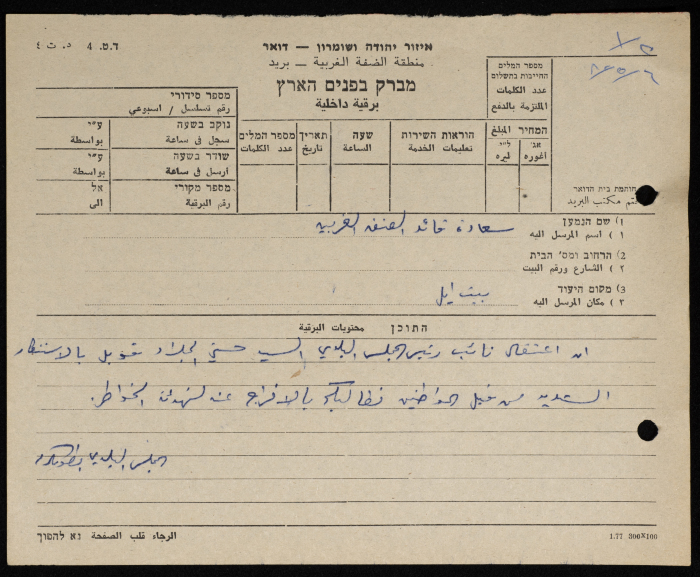 איזור יהודה ושומרון — דואר
منطقة الضفة الغربية — بريد
מברק בפנים הארץ
برقية داخلية
ד.ט. 4 ت ٤
מספר המלים החייבות בתשלום
عدد الكلمات الملتزمة بالدفع
המחיר המבلغ
אג' ل"י
أغورة ليره
הוראות השירות
تعليمات الخدمة
שעה
الساعة
תאריך
تاريخ
מספר המלים
عدد الكلمات
מספר סידורי
رقم تسلسل / اسبوعي
נוקב בשעה ע"י
سجل في ساعة بواسطة
שודר בשעה ע"י
ارسل في ساعة بواسطة
מספר מקורי אל
رقم البرقية الى
חותמת בית הדואר
ختم مكتب البريد
1) שם הנמען
١ ) اسم المرسل اليه
سعادة قائد الضفة الغربية
2) הרחוב ומס' הבית
٢ ) الشارع ورقم البيت
3) מקום היעוד
٣ ) مكان المرسل اليه
بيت ايل
התוכן محتويات البرقية
ان اعتقال نائب رئيس المجلس البلدي السيد حسني قوبل بالاستنكار
الشديد من قبل المواطنين نطالبكم بالافراج عنه لتهدئة الخواطر.
المجلس البلدي
الرجاء قلب الصفحة נא להפוך
1.77 500X100